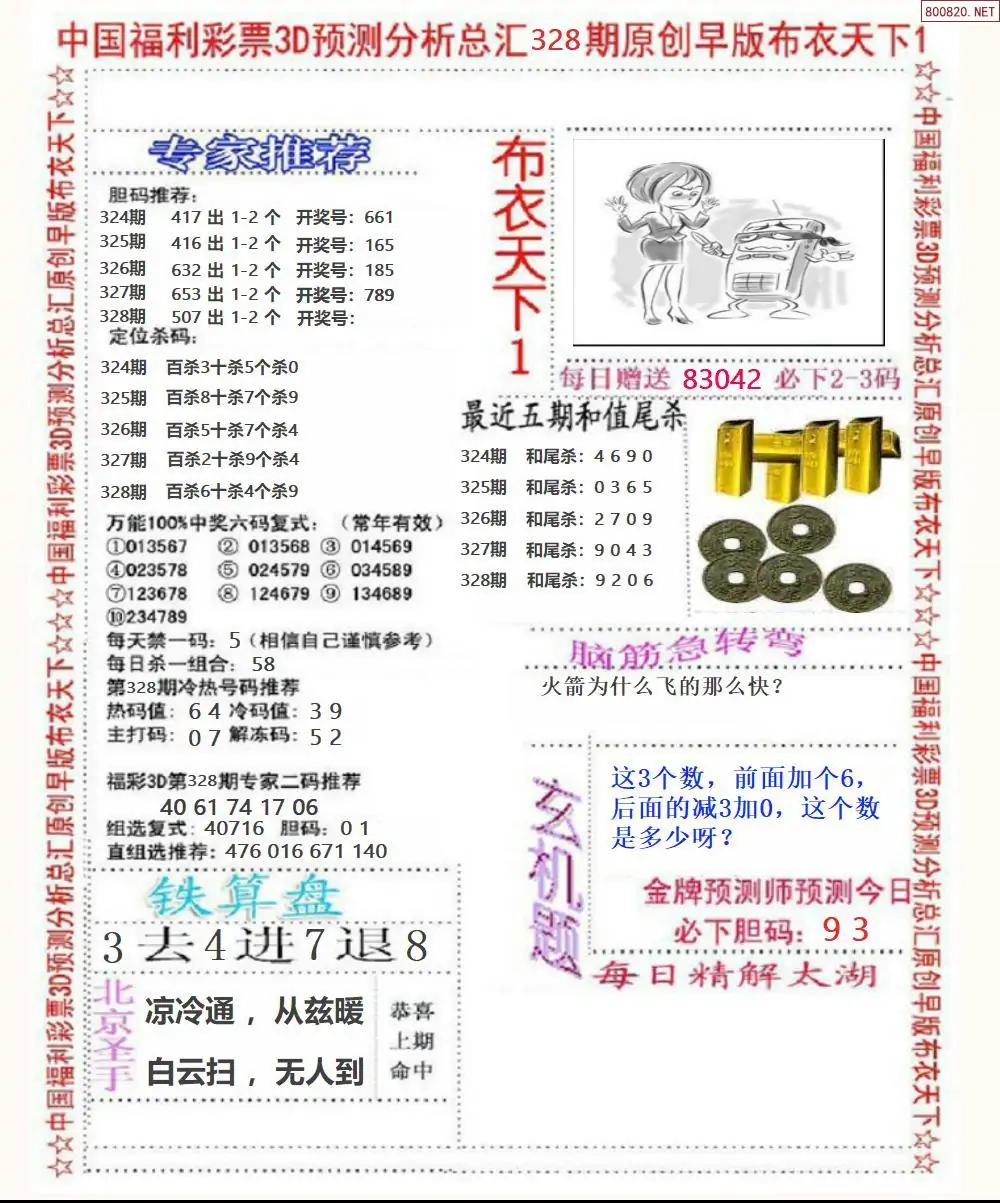 800820.NET
中国福利彩票3D预测分析总汇328期原创早版布衣天下1
☆☆中国福利彩票3D预测分析总汇原创早版布衣天下☆☆中国福利彩票3D预测分析总汇原创早版布衣天下☆☆
专家推荐
胆码推荐:
324期 417 出 1-2 个 开奖号: 661
325期 416 出 1-2 个 开奖号: 165
326期 632 出 1-2 个 开奖号: 185
327期 653 出 1-2 个 开奖号: 789
328期 507 出 1-2 个 开奖号:
定位杀码:
324期 百杀3十杀5个杀0
325期 百杀8十杀7个杀9
326期 百杀5十杀7个杀4
327期 百杀2十杀9个杀4
328期 百杀6十杀4个杀9
万能100%中奖六码复式: (常年有效)
①013567 ② 013568 ③ 014569
④023578 ⑤ 024579 ⑥ 034589
⑦123678 ⑧ 124679 ⑨ 134689
⑩234789
每天禁一码: 5(相信自己谨慎参考)
每日杀一组合: 58
第328期冷热号码推荐
热码值: 6 4 冷码值: 3 9
主打码: 0 7 解冻码: 5 2
福彩3D第328期专家二码推荐
40 61 74 17 06
组选复式: 40716 胆码: 0 1
直组选推荐: 476 016 671 140
铁算盘
3去4进7退8
北京圣手
凉冷通，从兹暖
白云扫，无人到
恭喜
上期
命中
布衣天下1
每日赠送 83042 必下2-3码
最近五期和值尾杀
324期 和尾杀: 4 6 9 0
325期 和尾杀: 0 3 6 5
326期 和尾杀: 2 7 0 9
327期 和尾杀: 9 0 4 3
328期 和尾杀: 9 2 0 6
脑筋急转弯
火箭为什么飞的那么快?
玄机题
这3个数，前面加个6，
后面的减3加0，这个数
是多少呀?
金牌预测师预测今日
必下胆码: 9 3
每日精解太湖
☆☆中国福利彩票3D预测分析总汇原创早版布衣天下☆☆中国福利彩票3D预测分析总汇原创早版布衣天下☆☆